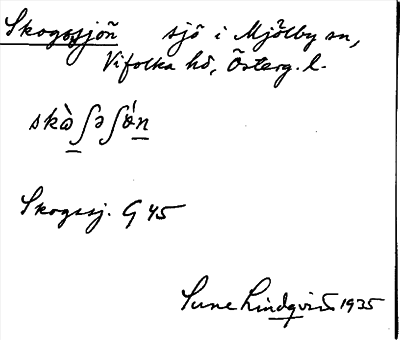 Skogssjön sjö i Mjölby sn,
Vifolka hd, Österg. l.
skὼʃəʃǿn
Skogssj. G 45
Sune Lindqvist 1935